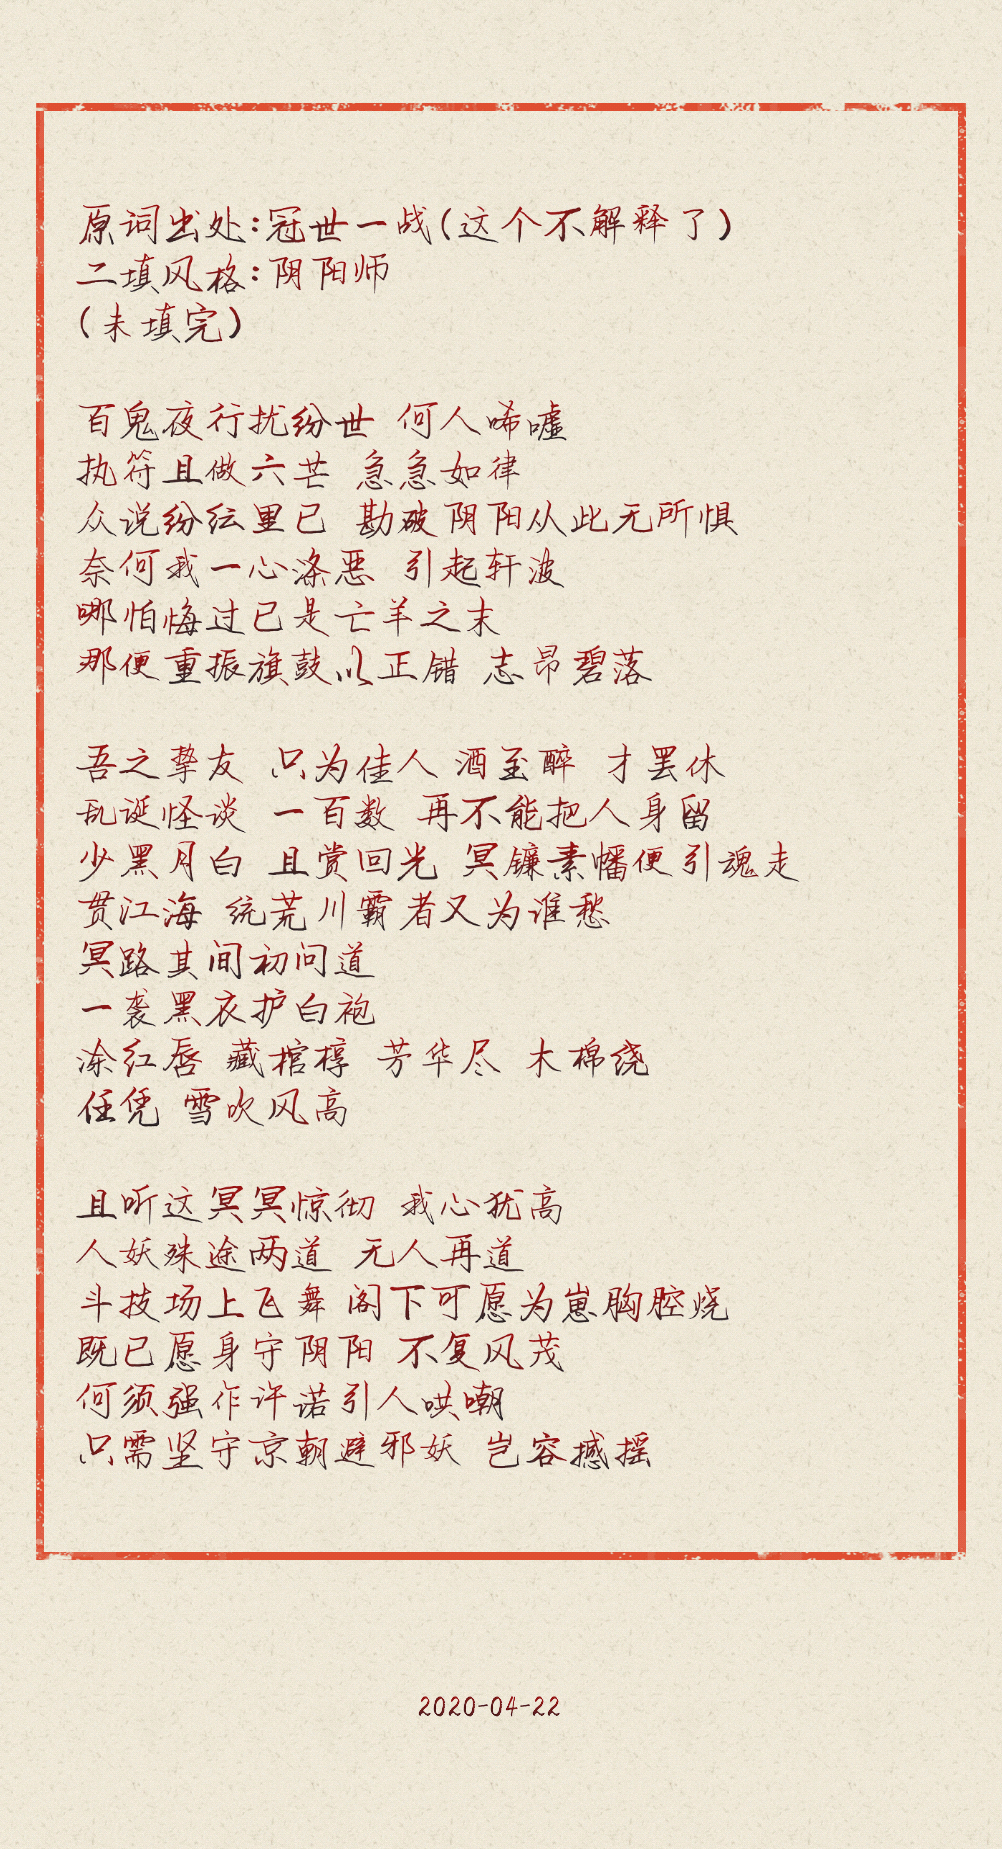 原词出处:冠世一战(这个不解释了)
二填风格:阴阳师
(未填完)
百鬼夜行扰纷世 何人唏嘘
执符且做六芒 急急如律
众说纷纭里已 勘破阴阳从此无所惧
奈何我一心涤恶 引起轩波
哪怕悔过已是亡羊之末
那便重振旗鼓以正错 志昂碧落
吾之挚友 只为佳人 酒至醉 才罢休
乱诞怪谈 一百数 再不能把人身留
少黑月白 且赏回光 冥镰素幡便引魂走
贯江海 统荒川霸者又为谁愁
冥路其间初问道
一袭黑衣护白袍
涂红唇 藏棺椁 芳华尽 木棉绕
任凭 雪吹风高
且听这冥冥惊彻 我心犹高
人妖殊途两道 无人再道
斗技场上飞舞 阁下可愿为崽胸腔烧
既已愿身守阴阳 不复风茂
何须强作许诺引人哄嘲
只需坚守京朝避邪妖 岂容撼摇
2020-04-22